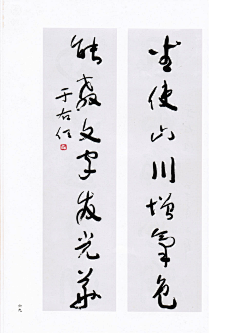 坐使山川增气色
能教文字发光华
于右任